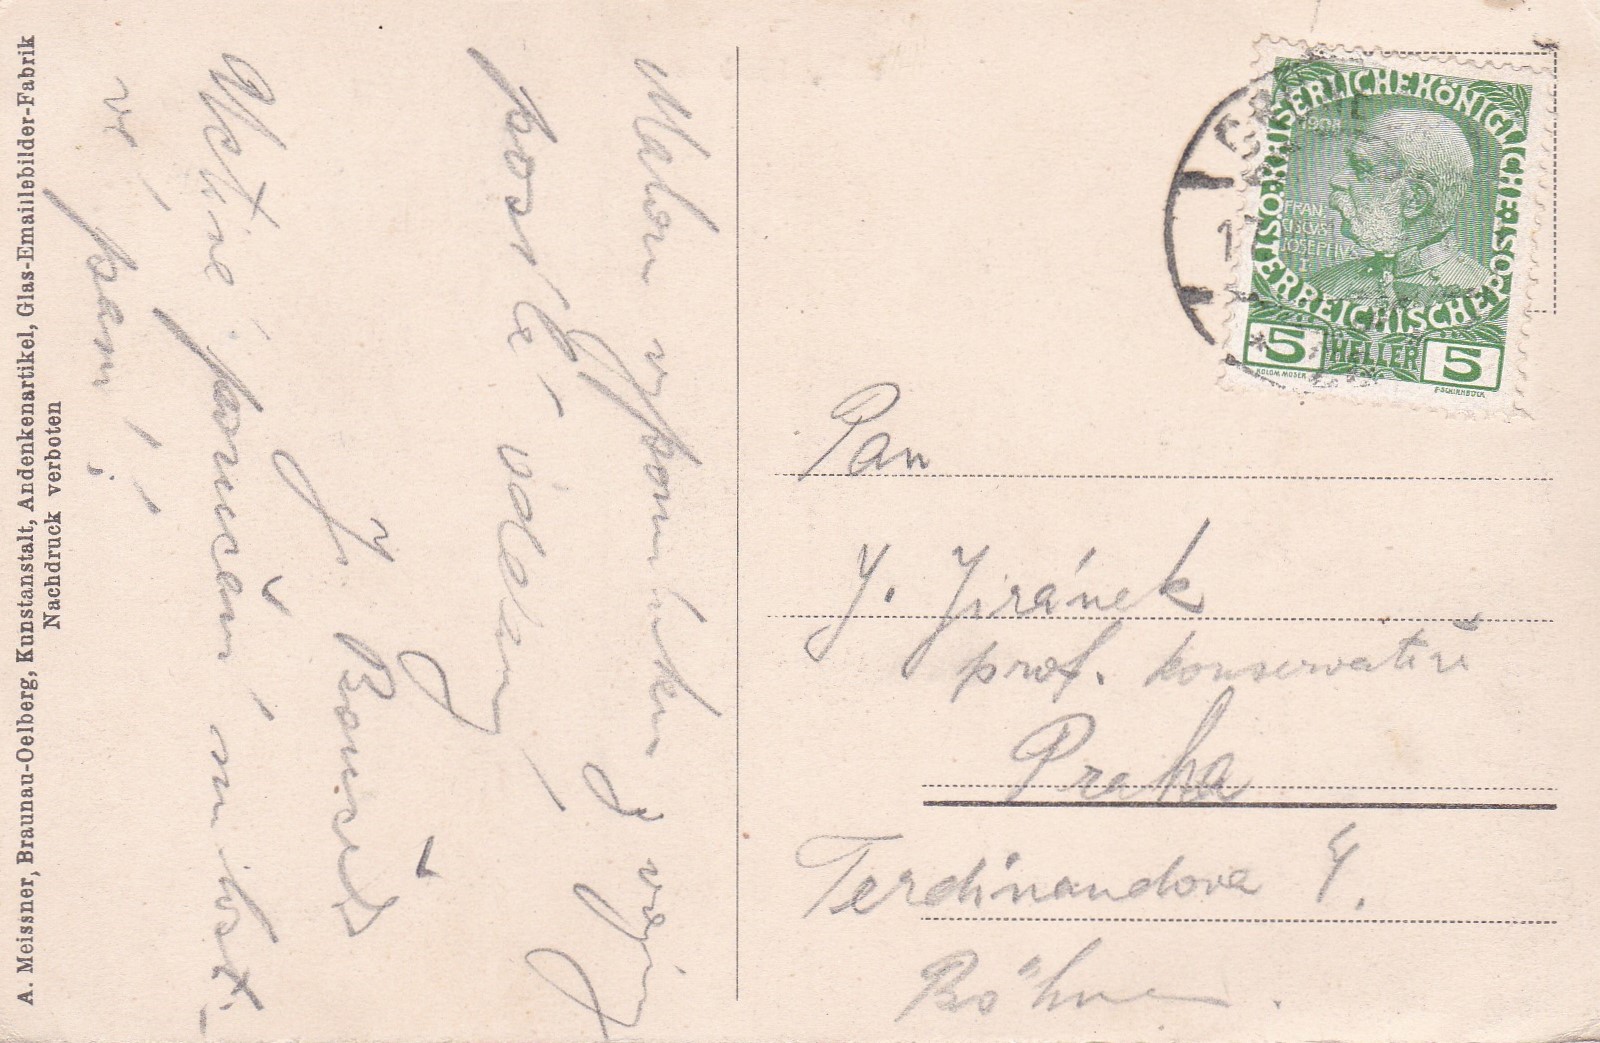 A. Meissner, Braunau-Oelberg, Kunstanstalt, Andenkenartikel, Glas-Emaillebilder-Fabrik
Nachdruck verboten
Malou vzpomínku z
posílá oddaný
J.
Uctivé poručení milost.
paní!
KAISERLICHE KÖNIGLICHE ÖSTERREICHISCHE POST
1908
FRAN
CISCVS
IOSEPHVS
I
5 HELLER 5
KOLOM. MOSER
F. SCHIRNBÖCK
Pan
J. Jiránek
prof. konservatoře
Praha
Ferdinandova
Böhmen.